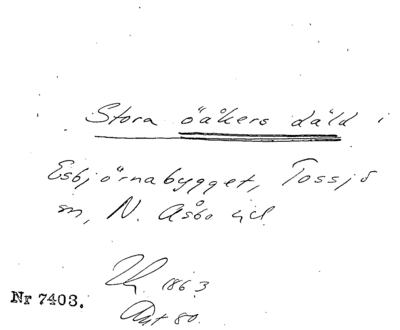 Stora öåkers däld i
Esbjörnabygget, Tossjö
sn, N. Åsbo hd.
1863
Nr 7403.
Ant 80.